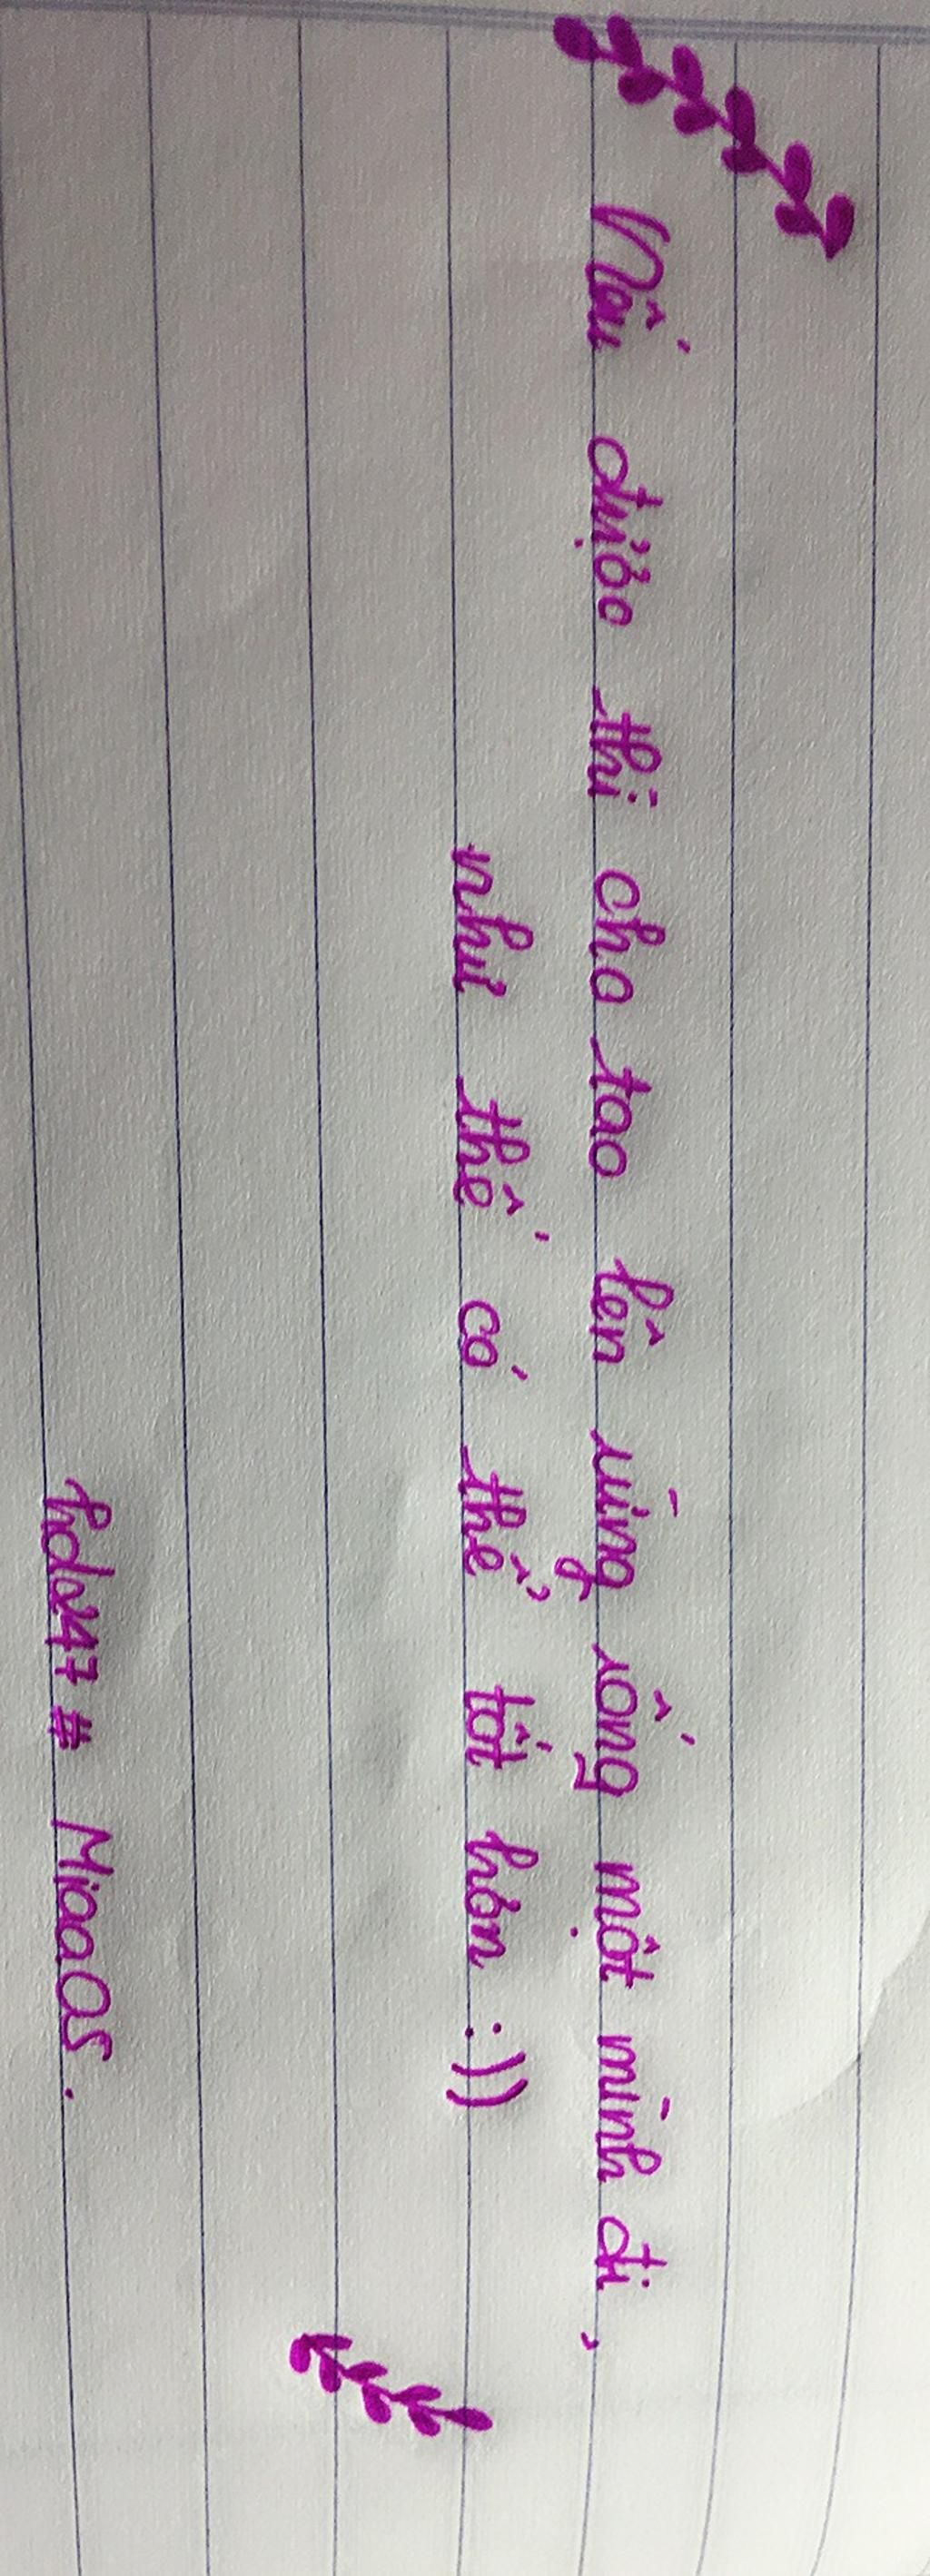 Nếu được thì cho tao lên rừng sống một mình đi,
như thế có thể tốt hơn :))
hda47 # MiaaOS.